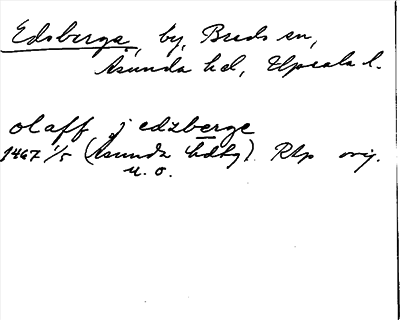 Edsberga, by, Breds sn,
Åsunda hd, Upsala l.
olaff j edzberge
1467 1/5 (Åsunda hdtg) Rtp orig.
u. o.